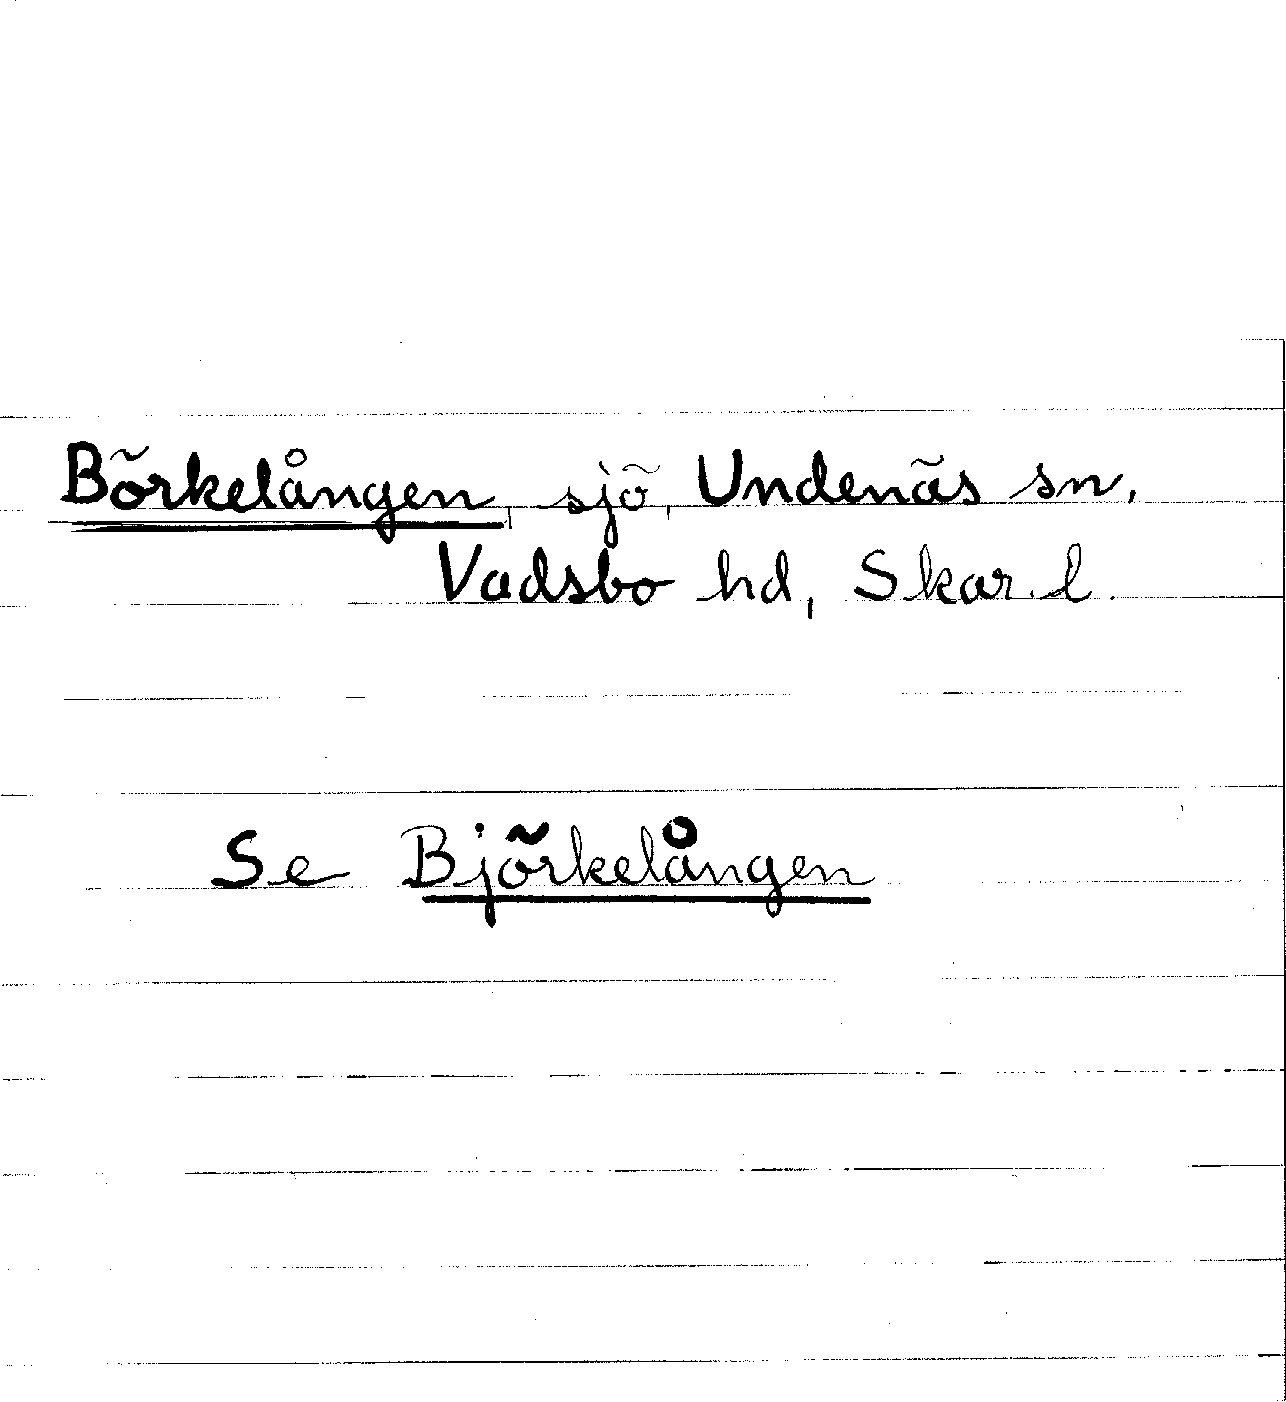 Börkelången, sjö, Undenäs sn,
Vadsbo hd, Skar. l.
Se Björkelången